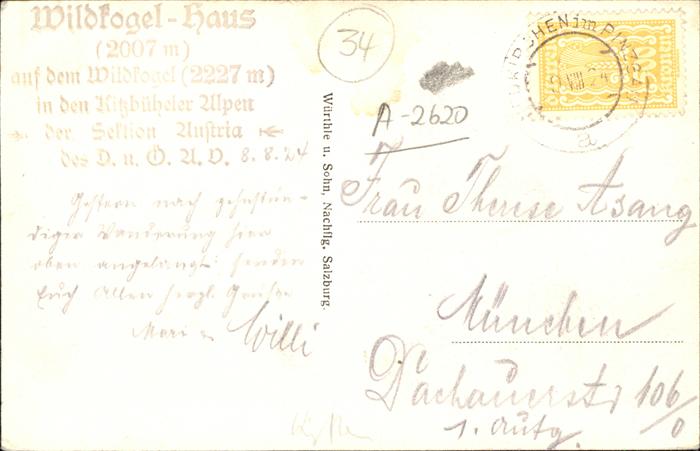 Wildkogel-Haus
(2007 m)
auf dem Wildkogel (2227 m)
in den Kitzbüheler Alpen
der Sektion Austria
des D. u. Ö. A. V. 8.8.24
Gestern nach zehnstün-
diger Wanderung hier
oben angelangt senden
Euch Allen herzl. Grüße
Willi
Würthle u. Sohn, Nachflg. Salzburg.
34
A-2620
KIRCHEN im PINZGAU
VIII 24
a
500
Frau Therese Asang
München
Dachauerstr 106/0
1. Aufg.